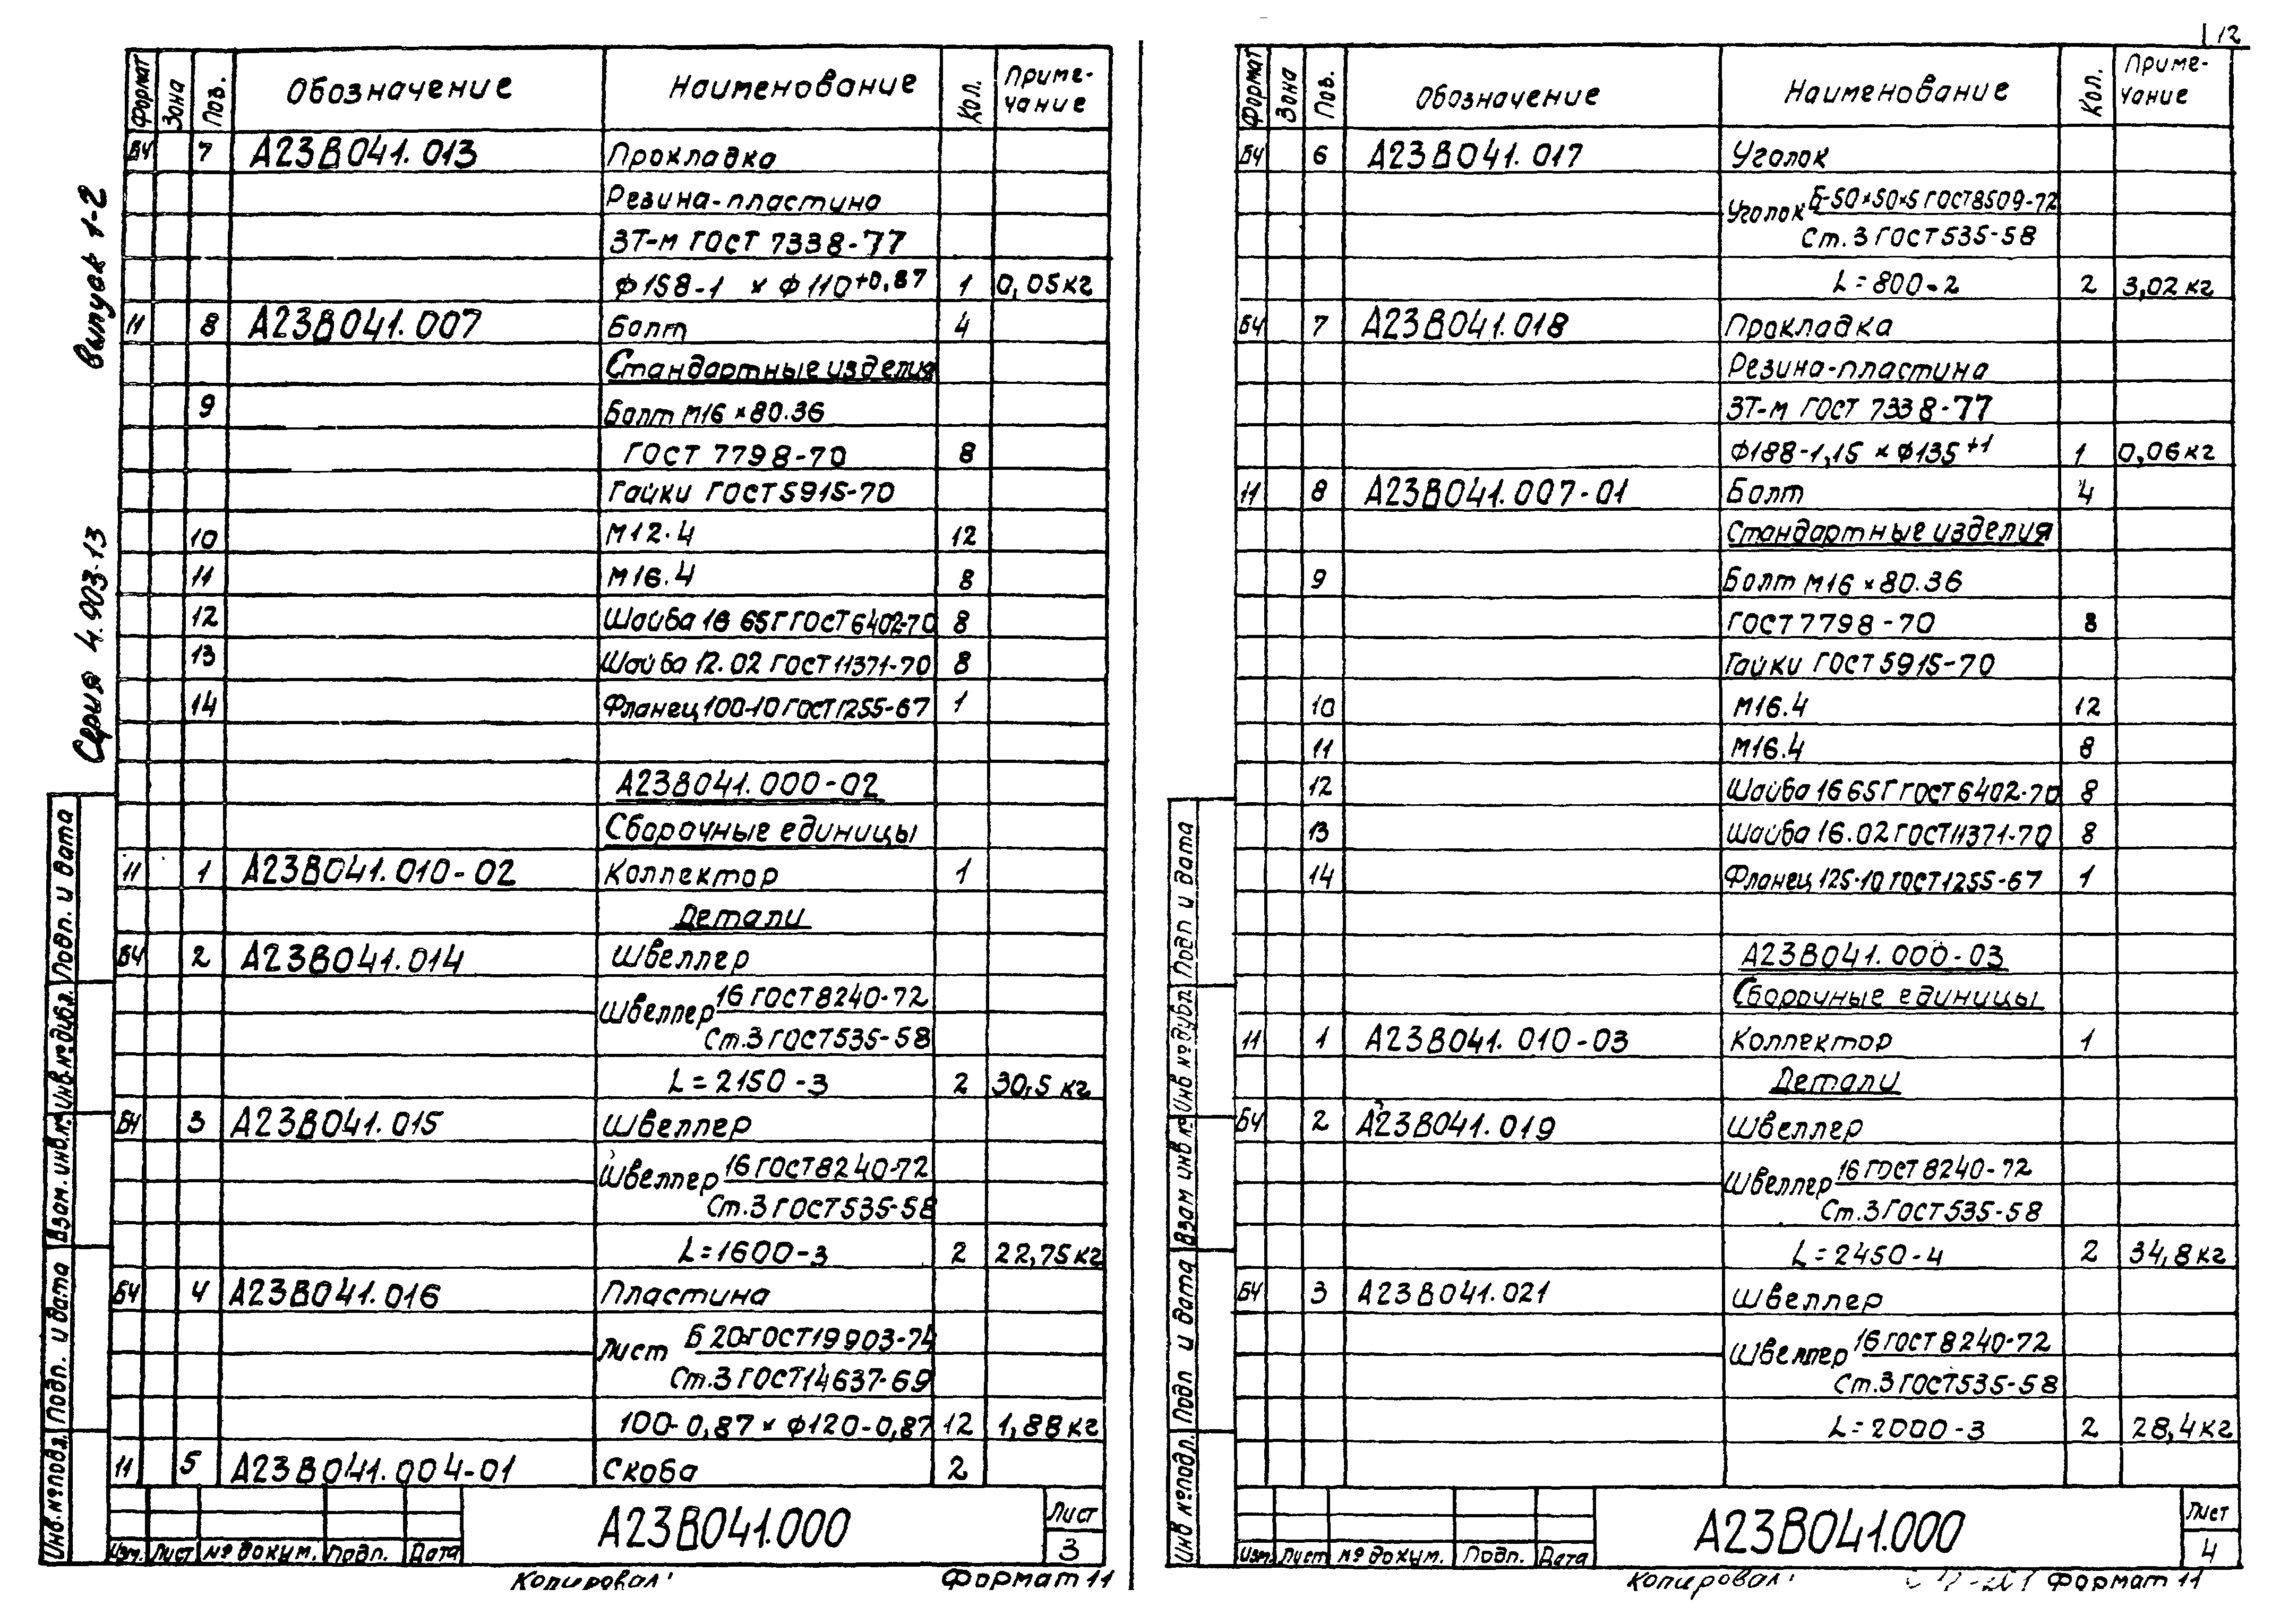 12
Выпуск 1-2
Серия 4.903-13
Формат Зона Поз. Обозначение Наименование Кол. Приме-
чание
БЧ 7 А23В041.013 Прокладка
Резина-пластина
3Т-м ГОСТ 7338-77
ф158-1 × ф110+0,87 1 0,05кг
11 8 А23В041.007 Болт 4
Стандартные изделия
9 Болт М16×80.36
ГОСТ 7798-70 8
Гайки ГОСТ5915-70
10 М12.4 12
11 М16.4 8
12 Шайба 16 65Г ГОСТ6402-70 8
13 Шайба 12.02 ГОСТ11371-70 8
14 Фланец 100-10 ГОСТ1255-67 1
А23В041.000-02
Сборочные единицы
11 1 А23В041.010-02 Коллектор 1
Детали
БЧ 2 А23В041.014 Швеллер
Швеллер 16 ГОСТ8240-72
Ст.3 ГОСТ535-58
L=2150-3 2 30,5 кг
БЧ 3 А23В041.015 Швеллер
Швеллер 16 ГОСТ8240-72
Ст.3 ГОСТ535-58
L=1600-3 2 22,75кг
БЧ 4 А23В041.016 Пластина
Лист Б 20 ГОСТ19903-74
Ст.3 ГОСТ14637-69
100-0,87 × ф120-0,87 12 1,88кг
11 5 А23В041.004-01 Скоба 2
Инв.№подл. Подп. и дата Взам. инв.№ Инв.№дубл. Подп. и дата
Изм. Лист № докум. Подп. Дата
А23В041.000
Лист
3
Копировал: Формат 11
Формат Зона Поз. Обозначение Наименование Кол. Приме-
чание
БЧ 6 А23В041.017 Уголок
Уголок Б-50×50×5 ГОСТ8509-72
Ст.3 ГОСТ535-58
L=800-2 2 3,02кг
БЧ 7 А23В041.018 Прокладка
Резина-пластина
3Т-м ГОСТ 7338-77
ф188-1,15 × ф135+1 1 0,06кг
11 8 А23В041.007-01 Болт 4
Стандартные изделия
9 Болт М16×80.36
ГОСТ7798-70 8
Гайки ГОСТ5915-70
10 М16.4 12
11 М16.4 8
12 Шайба 16 65Г ГОСТ6402-70 8
13 Шайба 16.02 ГОСТ11371-70 8
14 Фланец 125-10 ГОСТ1255-67 1
А23В041.000-03
Сборочные единицы
11 1 А23В041.010-03 Коллектор 1
Детали
БЧ 2 А23В041.019 Швеллер
Швеллер 16 ГОСТ8240-72
Ст.3 ГОСТ535-58
L=2450-4 2 34,8кг
БЧ 3 А23В041.021 Швеллер
Швеллер 16 ГОСТ8240-72
Ст.3 ГОСТ535-58
L=2000-3 2 28,4кг
Инв №подл. Подп и дата Взам инв № Инв №дубл. Подп и дата
Изм. Лист № докум. Подп. Дата
А23В041.000
Лист
4
Копировал: Формат 11